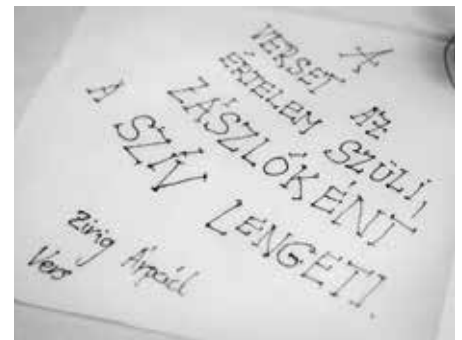 A
VERSET AZ
ÉRTELEM SZÜLI,
ZÁSZLÓKÉNT
A SZÍV LENGETI.
Zirig Árpád
Vers